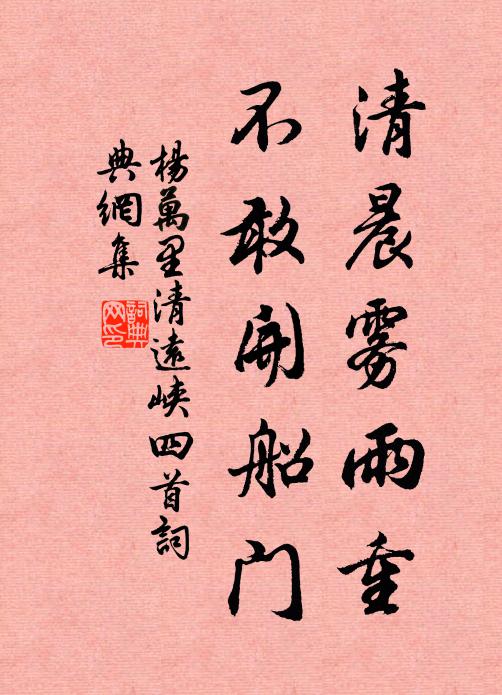 清晨雾雨重
不敢开船门
杨萬里清遠峡四首詞
典網集
詞典网印